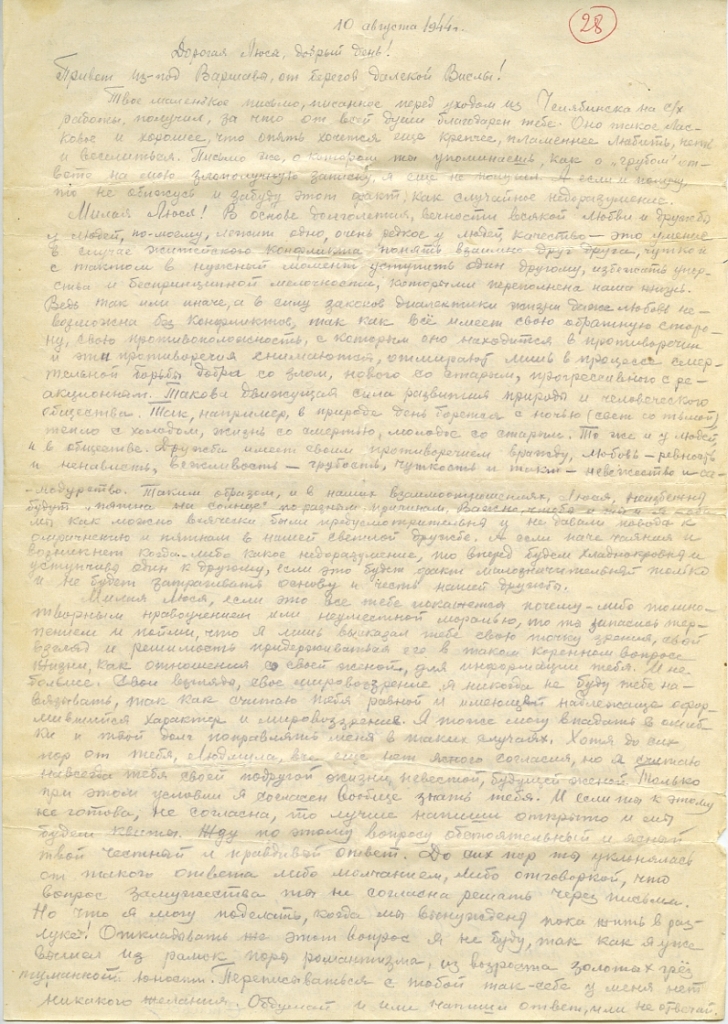 28
10 августа 1944 г.
Дорогая Люся, добрый день!
Привет из-под Варшавы, от берегов далекой Вислы!
Твое маленькое письмо, писанное перед уходом из Челябинска на с/х
работы, получил, за что от всей души благодарен тебе. Оно такое лас-
ковое и хорошее, что опять хочется еще крепче, пламеннее любить, петь
и веселиться. Письмо же, о котором ты упоминаешь, как о "грубом" от-
вете на мою злополучную записку, я еще не получил. А если и получу,
то не обижусь и забуду этот факт, как случайное недоразумение.
Милая Люся! В основе долголетия, вечности всякой любви и дружбы
у людей, по-моему, лежит одно, очень редкое у людей качество – это умение
в случае житейского конфликта понять взаимно друг друга, чуткой
с тактом в нужный момент уступить один другому, избежать упор-
ства и беспринципной мелочности, которыми переполнена наша жизнь.
Ведь так или иначе, а в силу законов диалектики жизни даже любовь не-
возможна без конфликтов, так как всё имеет свою обратную сторо-
ну, свою противоположность, с которым оно находится в противоречии
и эти противоречия снимаются, отмирают лишь в процессе смер-
тельной борьбы добра со злом, нового со старым, прогрессивного с ре-
акционным. Такова движущая сила развития природы и человеческого
общества. Так, например, в природе день борется с ночью (свет со тьмой)
тепло с холодом, жизнь со смертью, молодое со старым. То же и у людей,
и в обществе. Дружба имеет своим противоречием вражду, любовь – ревность
и ненависть, вежливость – грубость, чуткость и такт – невежество и са-
модурство. Таким образом, и в наших взаимоотношениях, Люся, неизбежно
будут "пятна на солнце" по разным причинам. Важно, чтобы и ты и я – оба
мы как можно всячески были предусмотрительны и не давали повода к
омрачению и пятнам в нашей светлой дружбе. А если паче чаяния и
возникнет когда-либо какое недоразумение, то вперед будем хладнокровны и
уступчивы один к другому, если это будет факт малозначительный только
и не будет затрагивать основу и честь нашей дружбы.
Милая Люся, если это все тебе покажется почему-либо тошно-
творным нравоучением или неуместной моралью, то ты запасись тер-
пением и пойми, что я лишь высказал тебе свою точку зрения, свой
взгляд и решимость придерживаться его в таком коренном вопросе
жизни, как отношения со своей женой, для информации тебя. И не
больше. Свои взгляды, свое мировоззрение я никогда не буду тебе на-
вязывать, так как считаю тебя равной и имеющей надлежаще офор-
мившийся характер и мировоззрение. Я тоже могу впадать в ошиб-
ки и твой долг поправлять меня в таких случаях. Хотя до сих
пор от тебя, Людмила, все еще нет ясного согласия, но я считаю
навсегда тебя своей подругой жизни, невестой, будущей женой. Только
при этом условии я согласен вообще знать тебя. И если ты к этому
не готова, не согласна, то лучше напиши открыто и мы
будем квиты. Жду по этому вопросу обстоятельный и ясный
твой честный и правдивый ответ. До сих пор ты уклонялась
от такого ответа либо молчанием, либо отговоркой, что
вопрос замужества ты не согласна решать через письма.
Но что я могу поделать, когда мы вынуждены пока жить в раз-
луке! Откладывать же этот вопрос я не буду, так как я уже
вышел из рамок поры романтизма, из возраста золотых грёз
туманной юности. Переписываться с тобой так-себе у меня нет
никакого желания. Обдумай и или напиши ответ, или не отвечай.